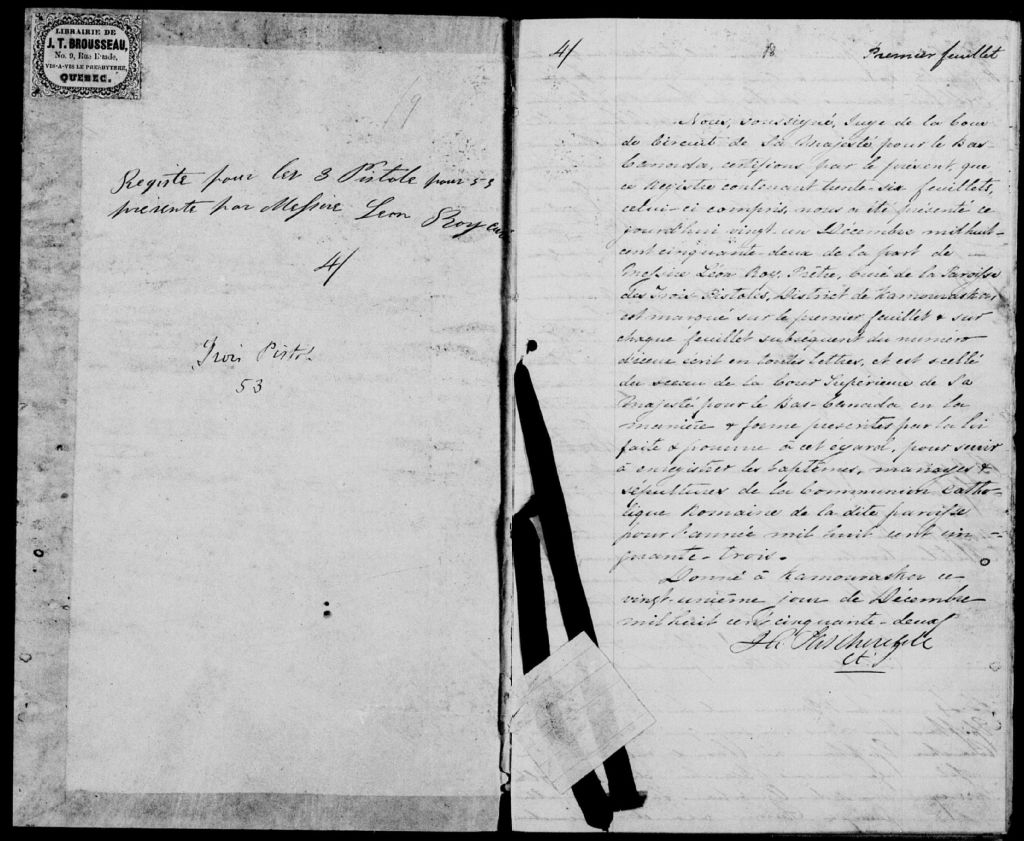 LIBRAIRIE DE
J. T. BROUSSEAU,
No. 9, Rue Buade,
VIS-A-VIS LE PRESBYTERE,
QUEBEC.
19
Registe pour les 3 Pistole pour 53
presente par Messire Leon Roy curé
4/
Trois Pistol.
53
4/
Premier feuillet
Nous, soussigné, Juge de la Cour
de Circuit de Sa Majesté pour le Bas
Canada, certifions par le présent, que
ce Registre contenant trente-six feuillets,
celui-ci compris, nous a été présenté ce
jourd'hui vingt-un Décembre mil huit-
cent cinquante-deux de la part de —
Messire Léon Roy, Prêtre, Curé de la Paroisse
des Trois-Pistoles, District de Kamouraska,
est marqué sur le premier feuillet & sur
chaque feuillet subséquent du numéro
d'iceux écrit en toutes lettres, et est scellé
du sceau de la Cour Supérieure de Sa
Majesté pour le Bas-Canada en la
manière & forme prescrites par la loi
faite & pourvue à cet égard, pour servir
à enregistrer les baptêmes, mariages &
sépultures de la Communion Catho-
lique Romaine de la dite paroisse
pour l'année mil huit cent cin-
quante-trois.
Donné à Kamouraska ce
vingt-unième jour de Décembre
mil huit cent cinquante-deux